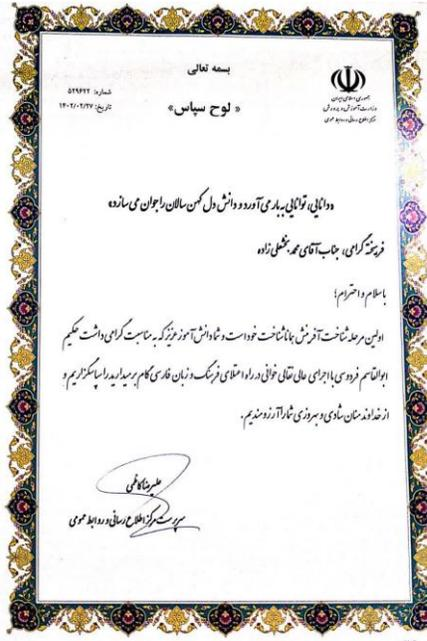 بسمه تعالی
« لوح سپاس»
جمهوری اسلامی ایران
وزارت آموزش و پرورش
مرکز اطلاع رسانی و روابط عمومی
شماره: ۵۲۹۶۲۲
تاریخ: ۱۴۰۲/۰۲/۲۷
«دانایی، توانایی به بار می آورد و دانش دل کهن سالان را جوان می سازد»
فرهیخته گرامی، جناب آقای محمد بخشعلی زاده
با سلام و احترام؛
اولین مرحله شناخت آفرینش همانا شناخت خود است و شما دانش آموز عزیز که به مناسبت گرامی داشت حکیم
ابوالقاسم فردوسی با اجرای عالی نقالی خوانی در راه اعتلای فرهنگ و زبان فارسی گام برمیدارید را سپاسگزاریم و
از خداوند منان شادی و بهروزی شما را آرزومندیم.
علیرضا کاظمی
سرپرست مرکز اطلاع رسانی و روابط عمومی